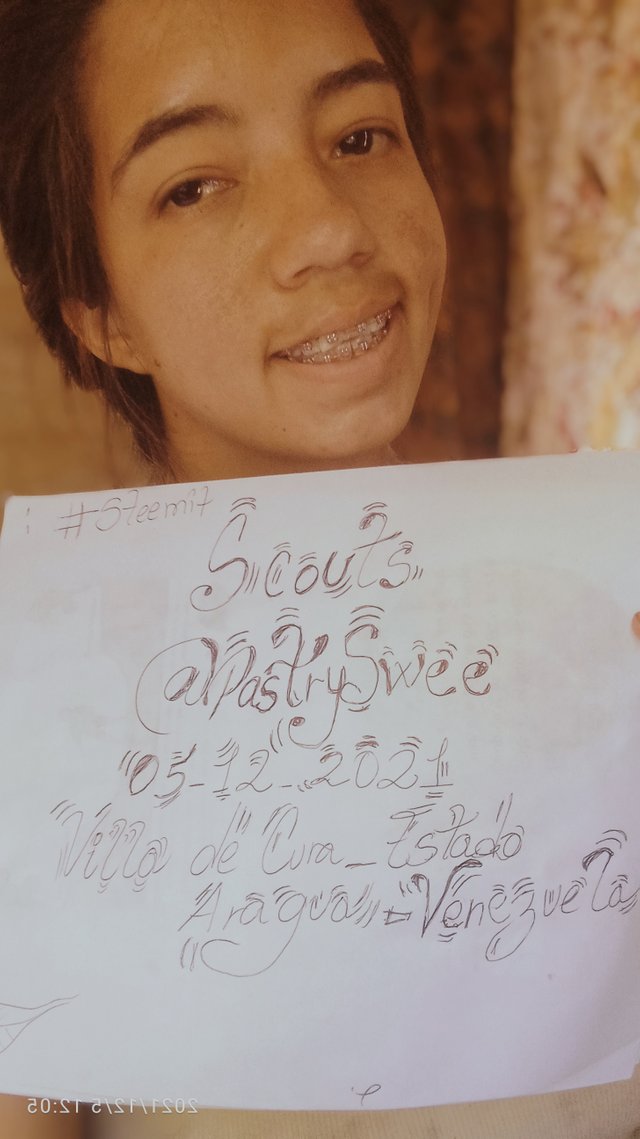 #Steemit
Scouts
@PastrySwee
"05-12-2021
Villa de Cura_Estado
Aragua=Venezuela
2021/12/5 12:05